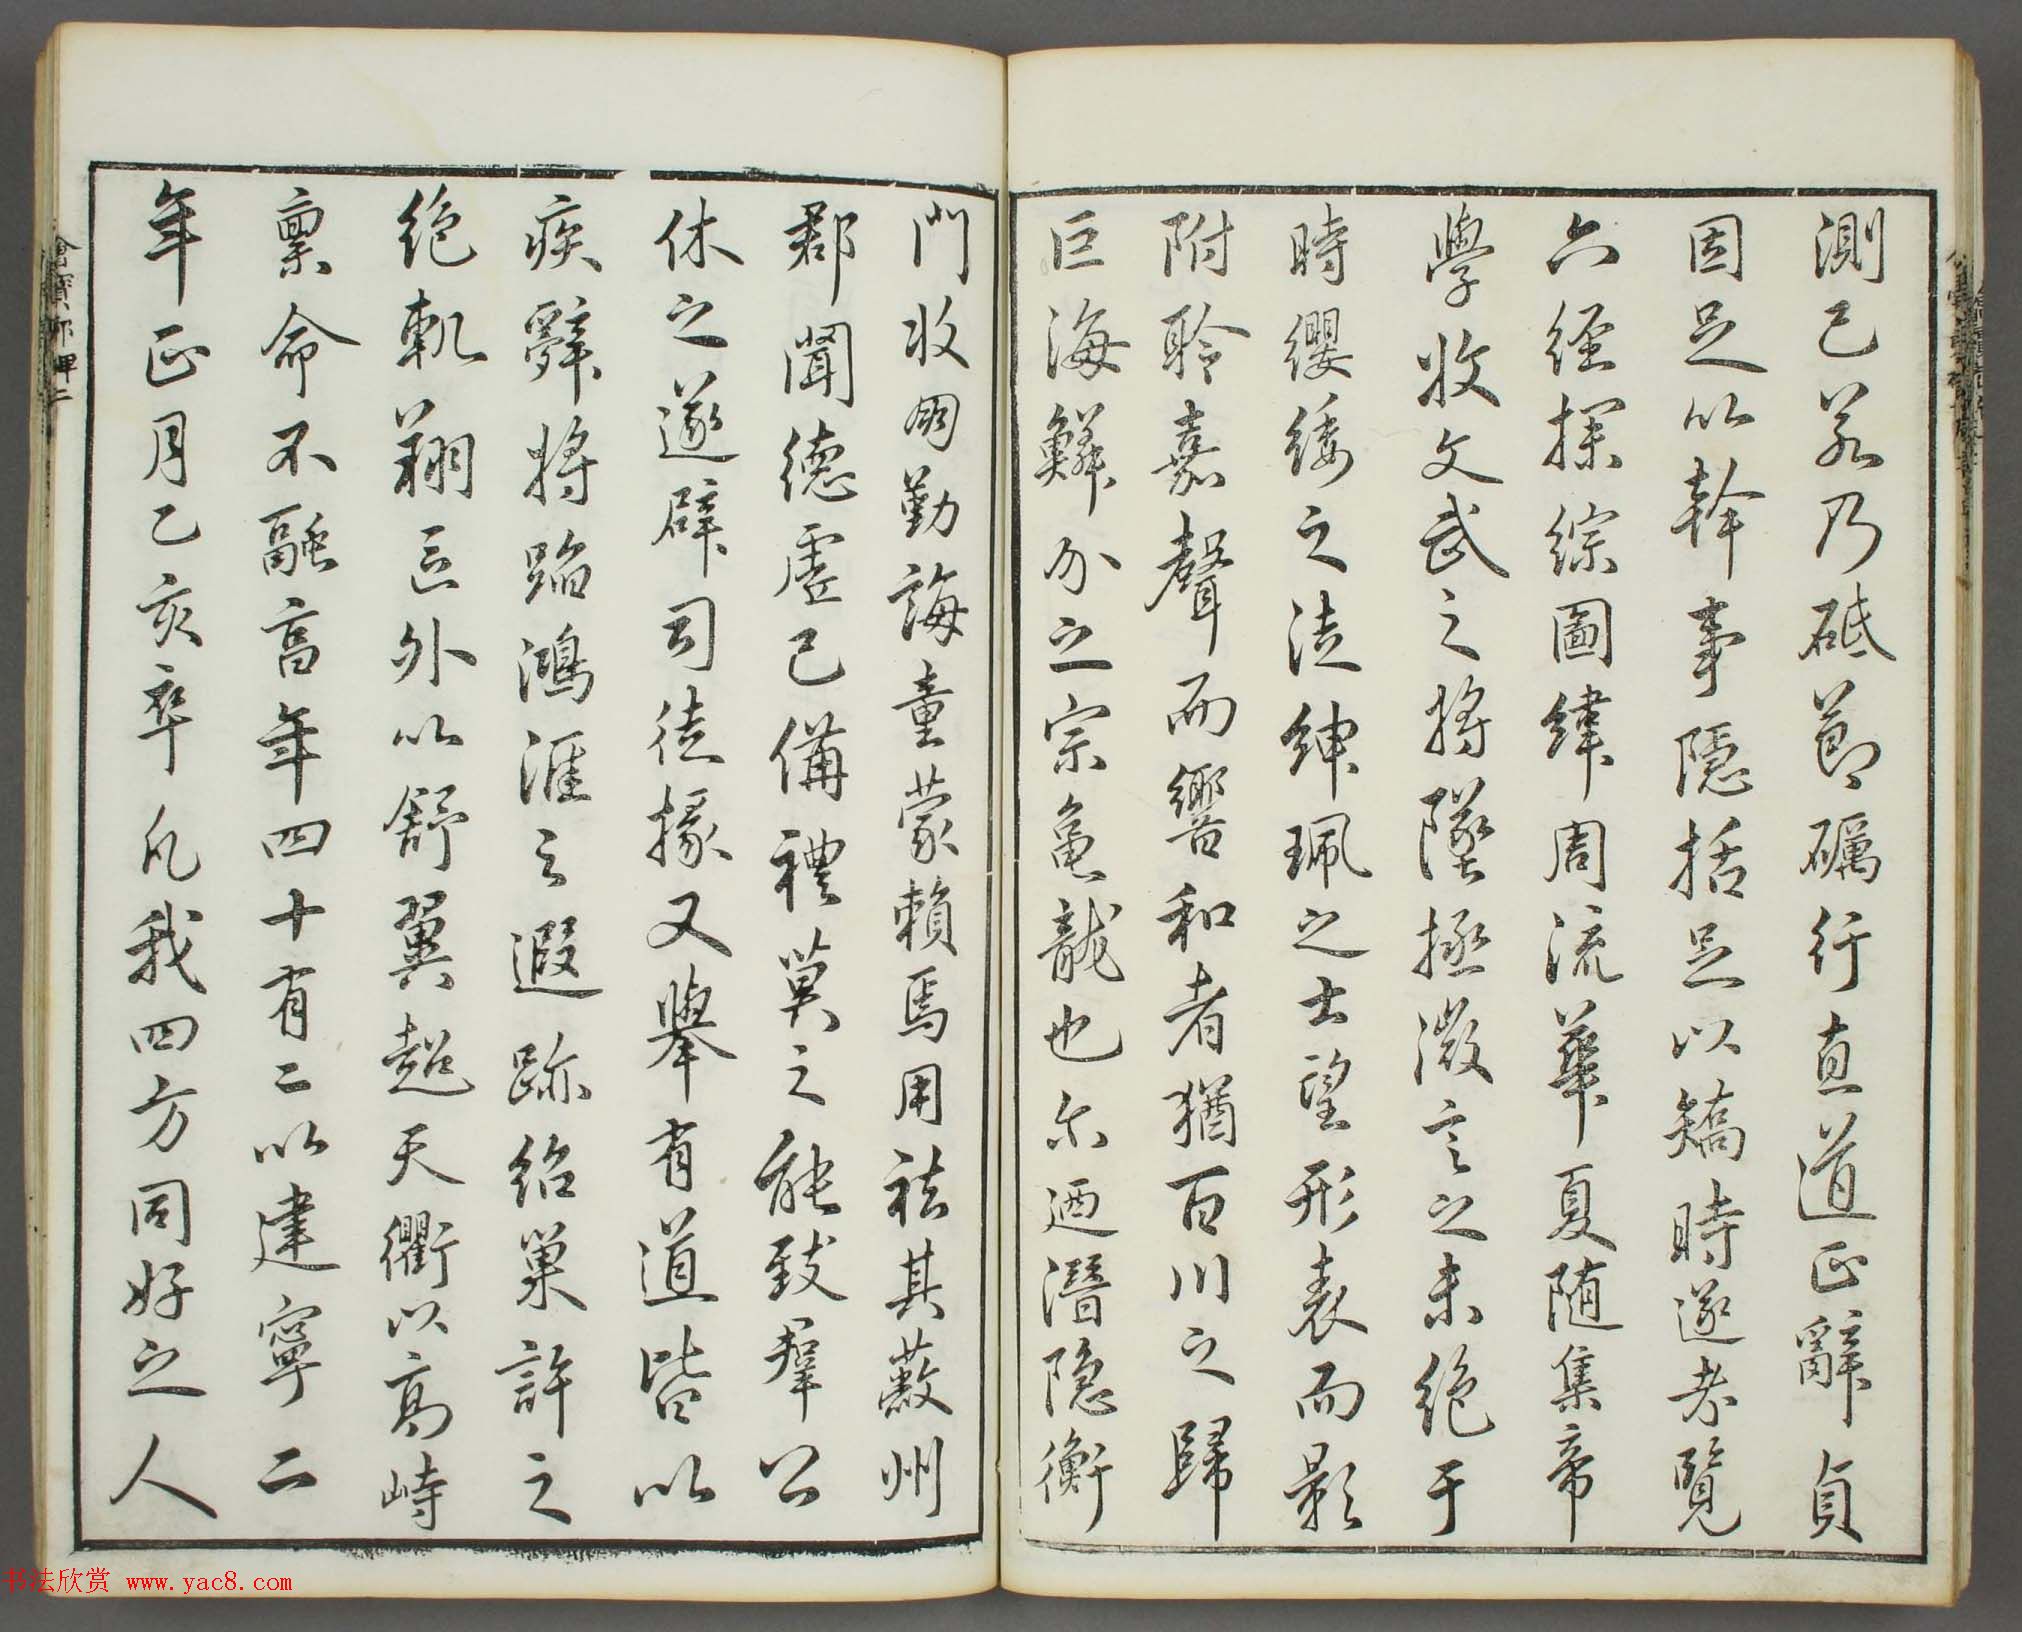 測已若乃砥節礪行直道正辭貞
固足以幹事隱括足以矯時遂考覽
六經探綜圖緯周流華夏随集帝
學收文武之將墜拯微言之未絶于
時纓緌之徒紳珮之士望形表而影
附聆嘉聲而響和者猶百川之歸
巨海鱗介之宗龜龍也尓迺潛隐衡
門收朋勤誨童蒙賴焉用祛其蔽州
郡聞德虛己備禮莫之能致羣公
休之遂辟司徒掾又舉有道皆以
疾辭將蹈鴻涯之遐跡紹巢許之
絶軌翔區外以舒翼超天衢以高峙
禀命不融享年四十有二以建寧二
年正月乙亥卒凡我四方同好之人
书法欣赏 www.yac8.com